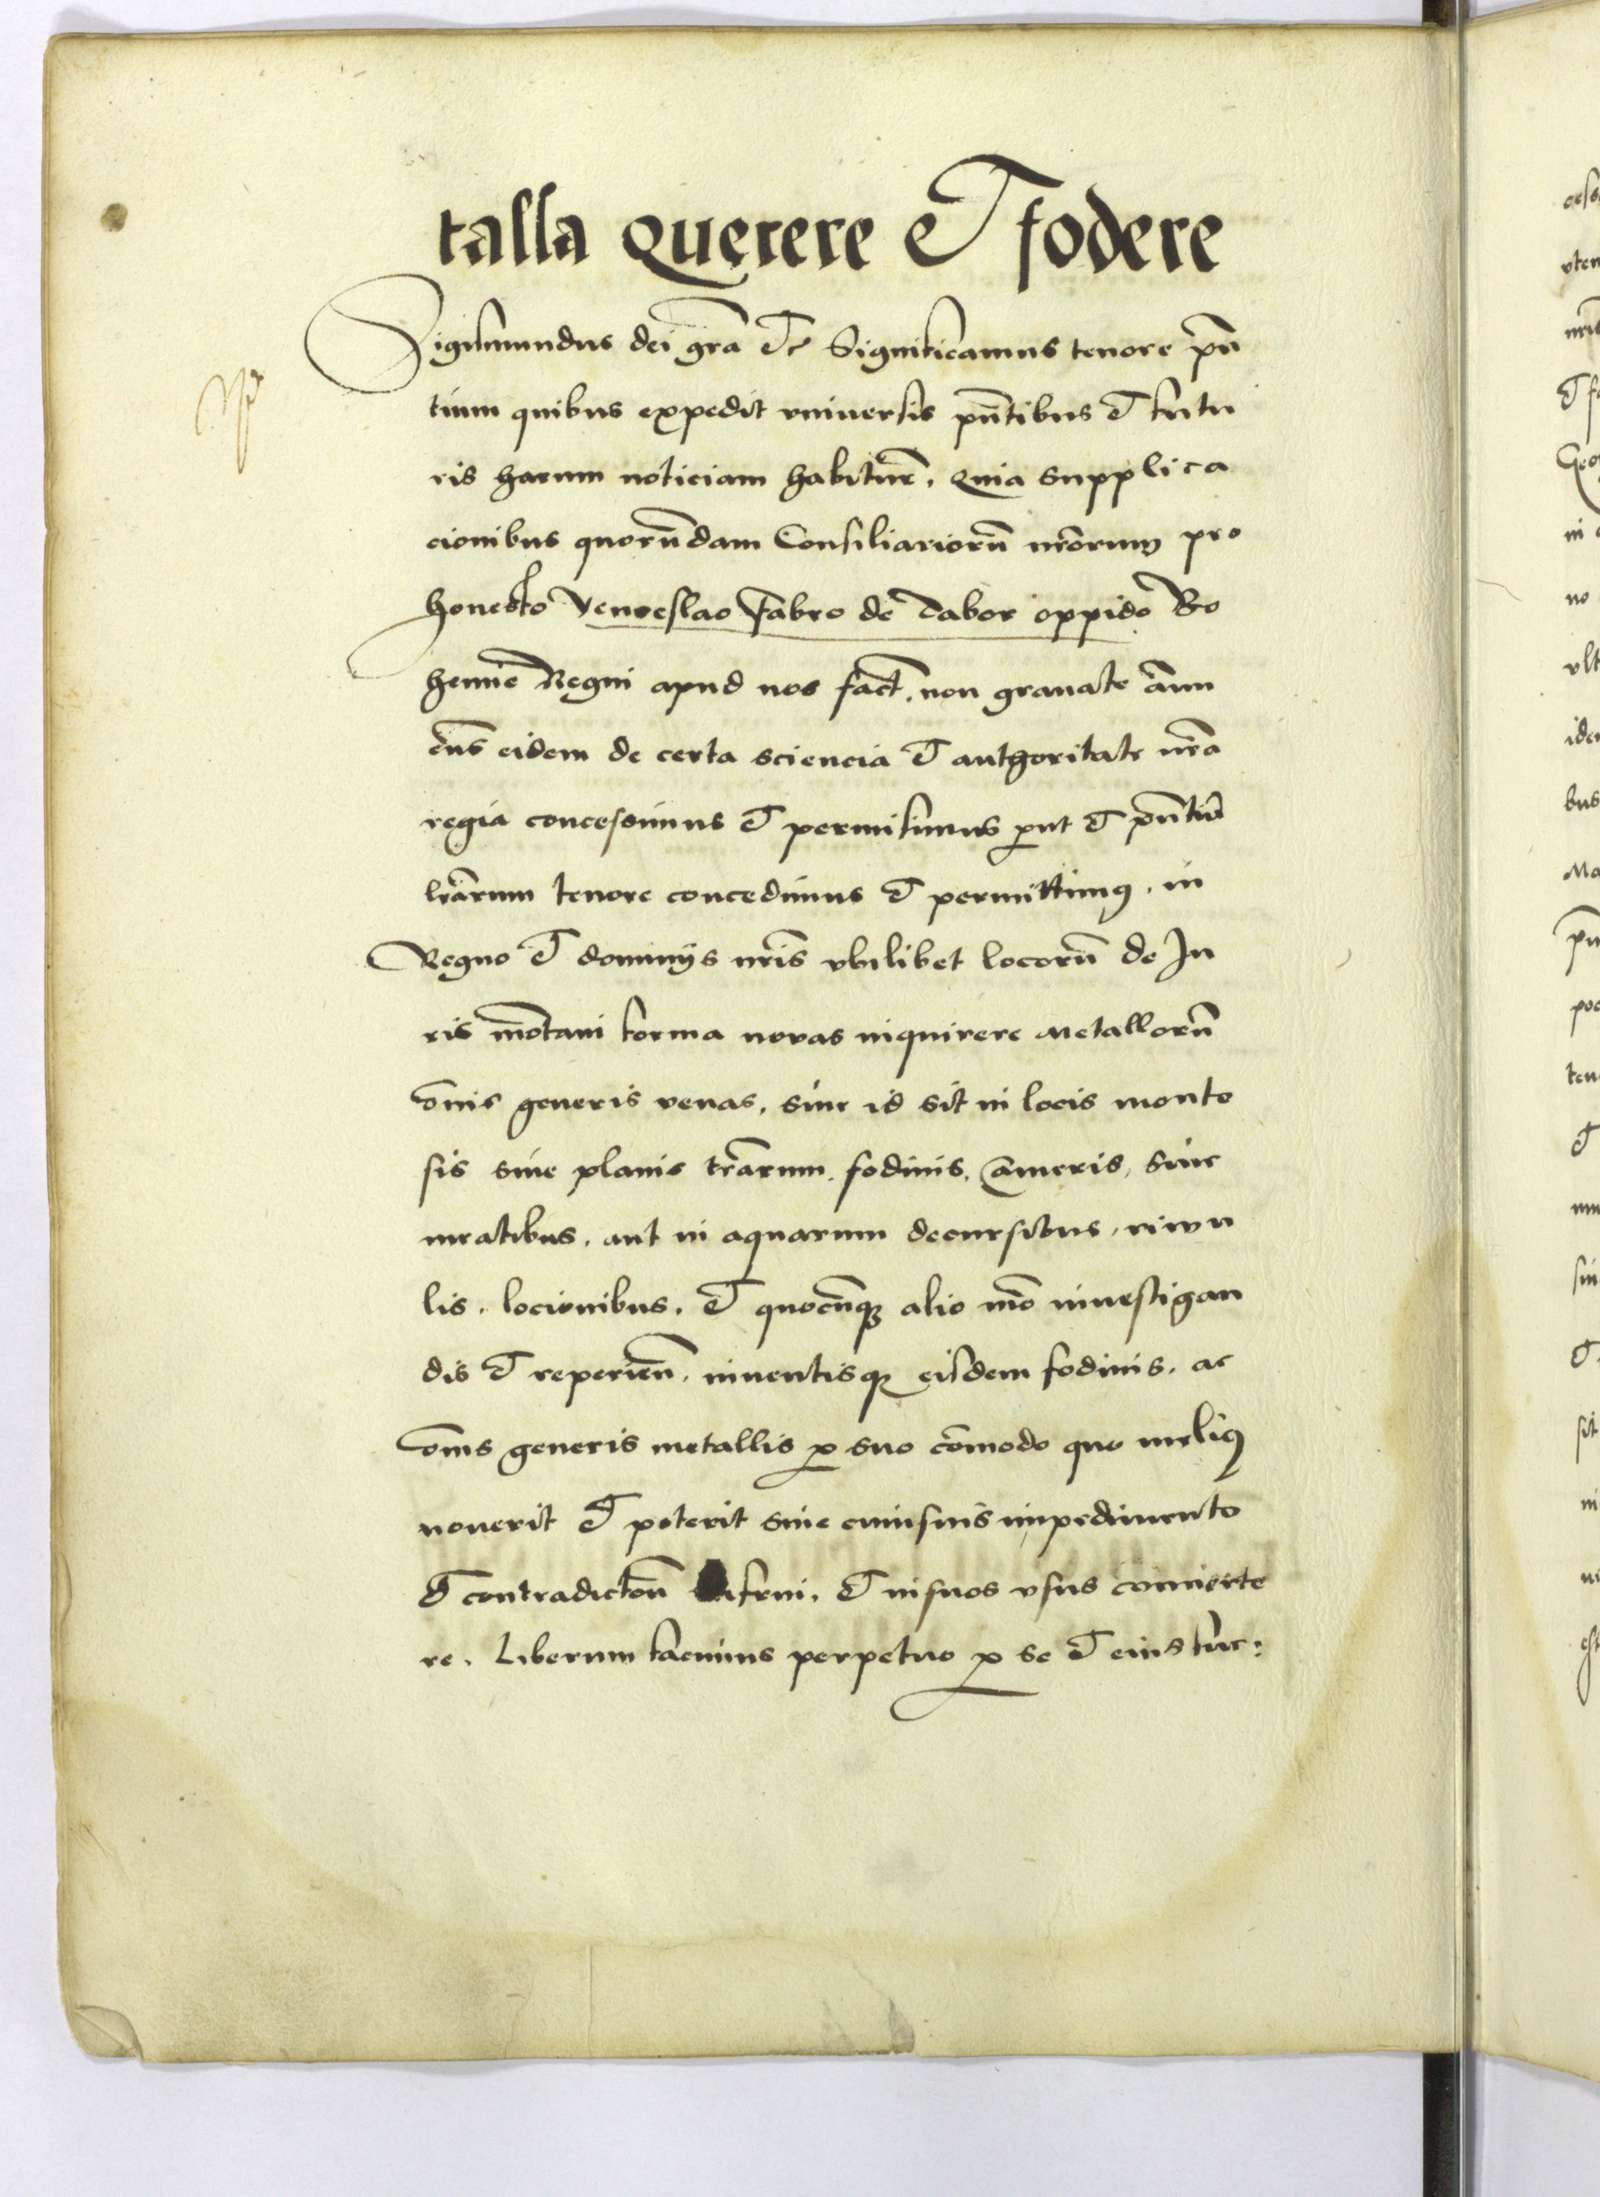 talla querere et fodere
Sigismundus dei gra etc Significamus tenore pn
tium quibus expedit vniuersis pntibus et futu
ris harum noticiam habitur. Quia supplica
cionibus quorundam Consiliariorū nrorum pro
honesto Venceslao fabro de Tabor oppido Bo
hemie Regni apud nos fact. non grauate annu
ens eidem de certa sciencia et authoritate nra
regia concessimus et permisimus put et pntiū
lrarum tenore concedimus et permittimus. in
Regno et dominijs nris vbilibet locorū de Ju
ris motani forma novas inquirere metallorū
omis generis venas. siue id sit in locis monto
sis siue planis trarum. fodinis. cameris, siue
meatibus. aut in aquarum decursibus, riwu
lis. locionibus. et quocunq alio mo inuestigan
dis et reperien. inuentisq eisdem fodinis. ac
omis generis metallis p suo comodo quo melius
nouerit et poterit sine cuiusuis impedimento
et contradiction frui. et in suos vsus conuerte
re. Liberum facimus perpetuo p se et eius